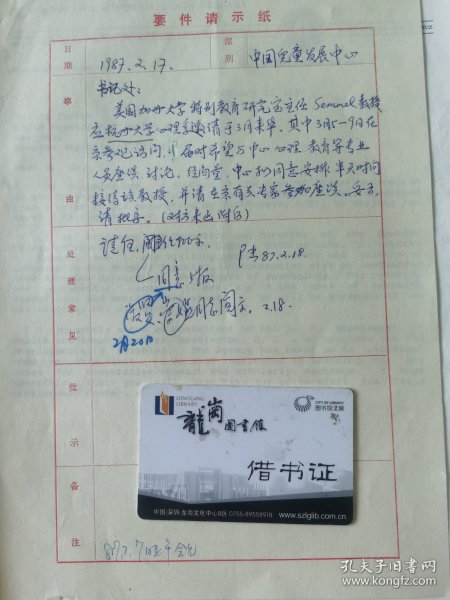 要件请示纸
日期
1987.2.17.
部别
中国儿童发展中心
事由
书记处:
美国加州大学特别教育研究室主任Semmel教授
应杭州大学心理系邀请于3月来华,其中3月5-9日在
京参观访问,届时希望与中心心理教育等专业
人员座谈、讨论。经向童、中心同意安排半天时间
接待该教授,并请在京有关专家参加座谈。妥否,
请批示。(对方来函附后)
处理意见
87.2.18.
同意
同志阅示,2.18.
2月20日
批示
LONGGANG LIBRARY
CITY OF LIBRARY
图书馆之城
龍崗圖書館
借书证
中国·深圳·龙岗文化中心B区 0755-89558918 www.szlglib.com.cn
备注
孔夫子旧书网
www.kongfz.com